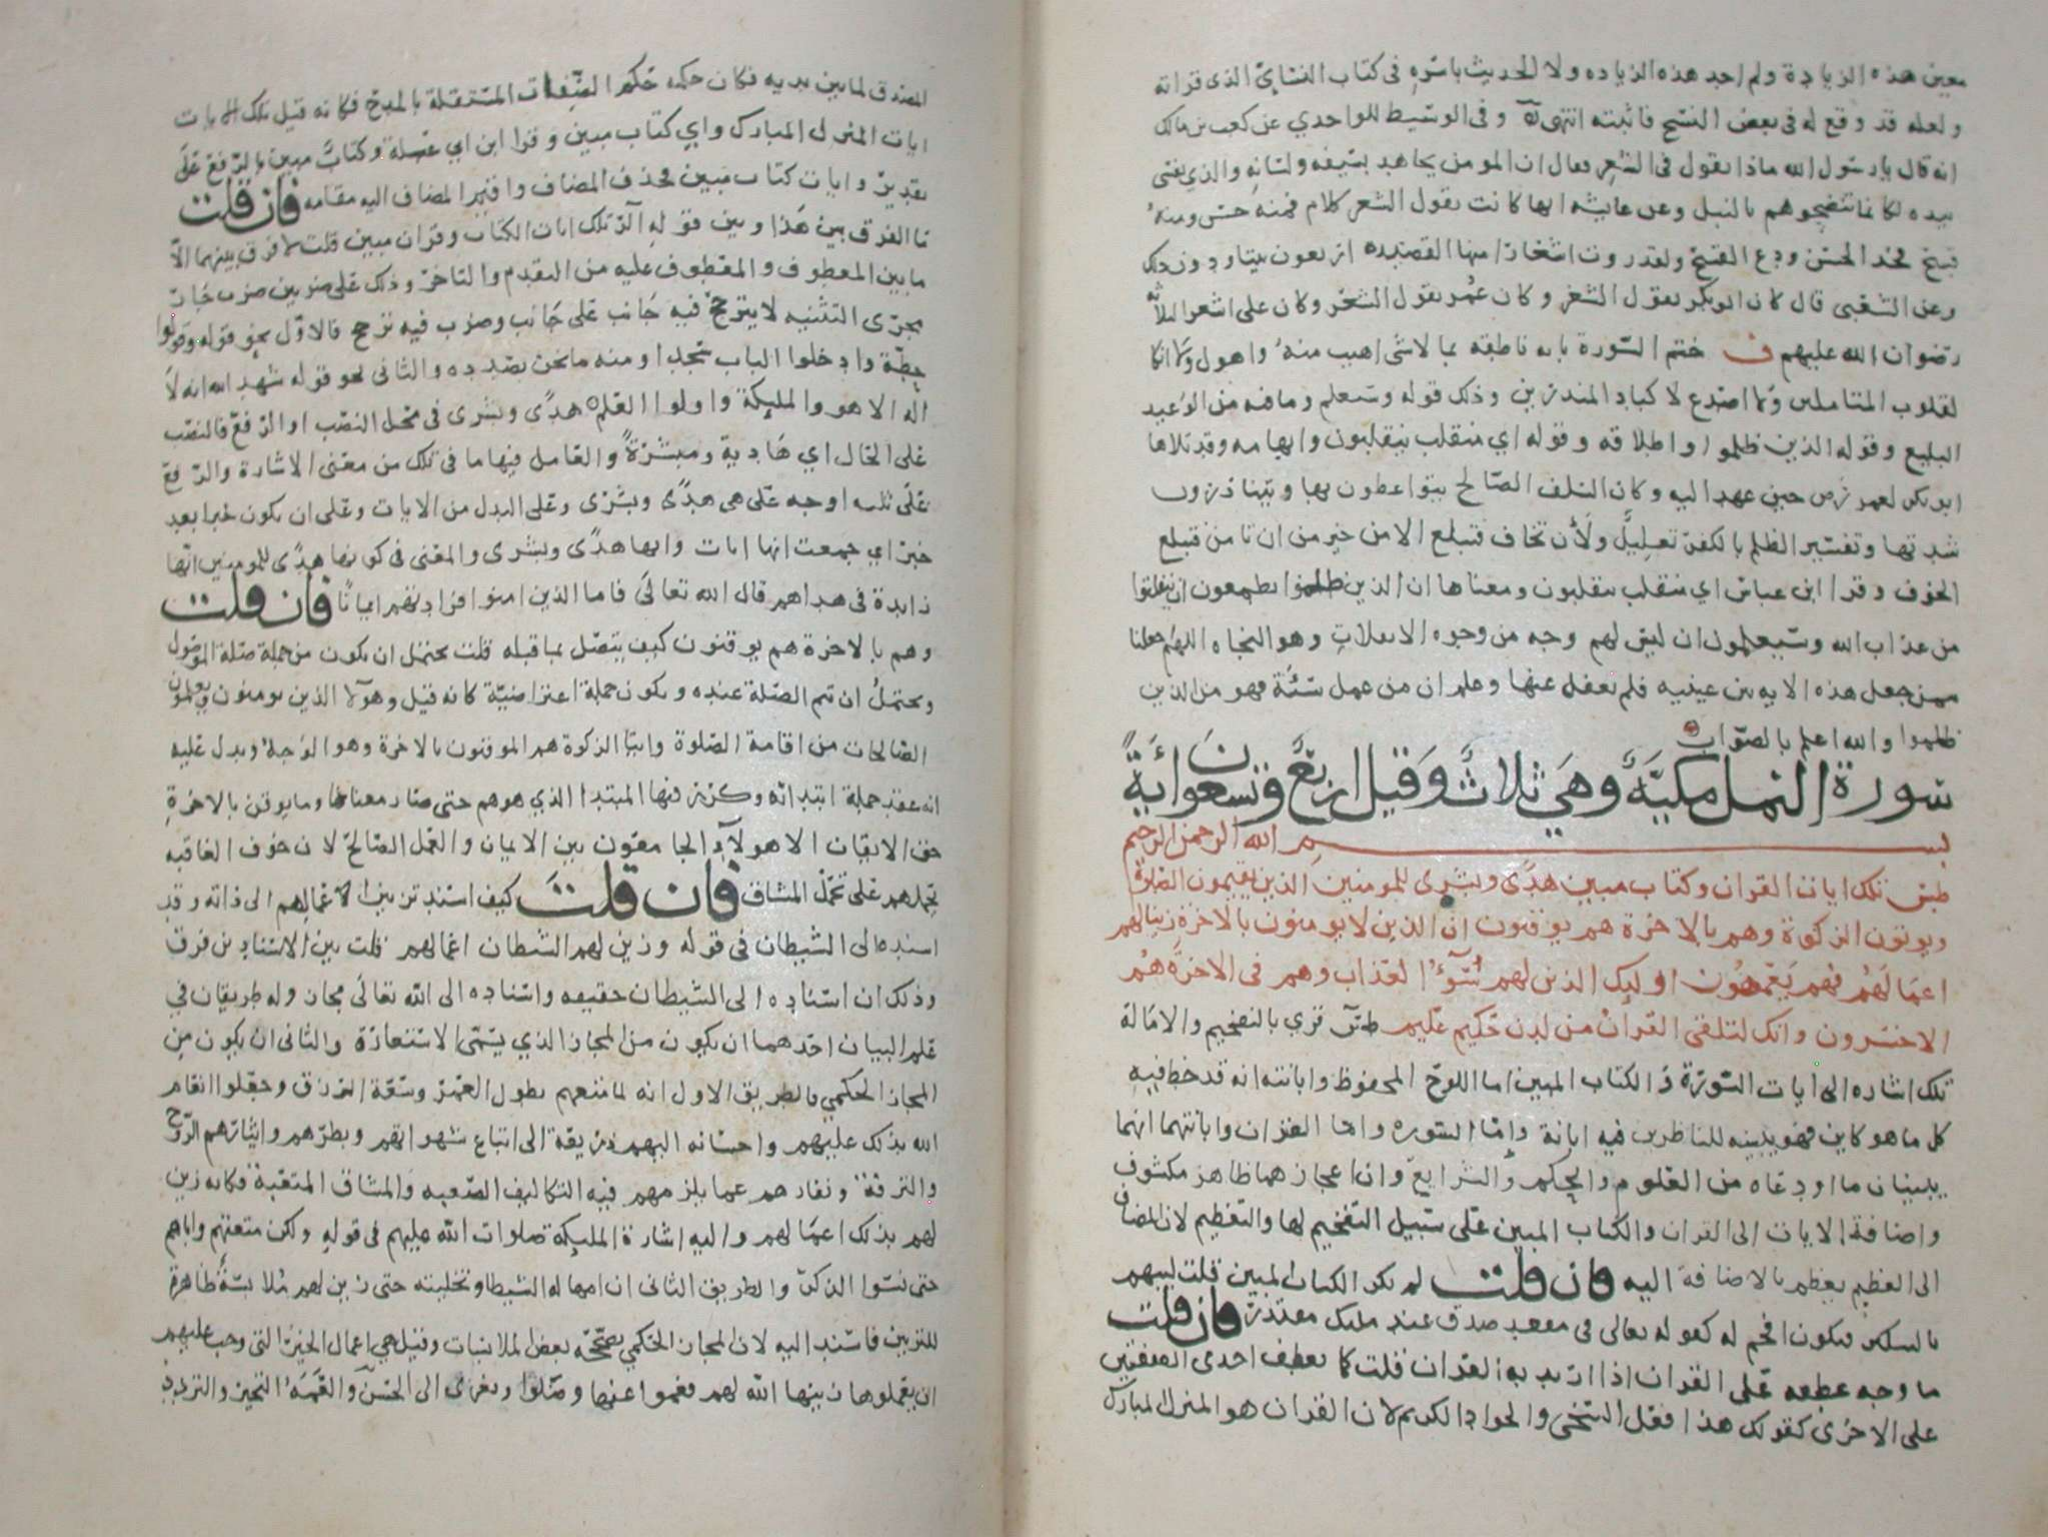 معين هذه الزيادة ولم اجد هذه الزياده ولا الحديث باسره في كتاب النسائي الذي قراته
ولعله قد وقع له في بعض النسخ فاثبته انتهى وفى الوسيط للواحدي عن كعب بن مالك
انه قال يا رسول الله ماذا تقول في الشعر فقال ان المومن يجاهد بسيفه ولسانه والذي نفسي
بيده لكانما تنضحوهم بالنبل وعن عايشه انها كانت تقول الشعر كلام فمنه حسن ومنه
قبيح فخذ الحسن ودع القبيح ولقد رويت اشعارا منها القصيده اربعون بيتا ودون ذلك
وعن الشعبي قال كان ابو بكر يقول الشعر وكان عمر يقول الشعر وكان على اشعر الثلاثه
رضوان الله عليهم ف ختم السورة بايه ناطقه بما لا شى اهيب منه واهول ولا انكا
لقلوب المتاملين ولا اصدع لاكباد المتدبرين وذلك قوله وسيعلم وما فيه من الوعيد
البليغ وقوله الذين ظلموا واطلاقه وقوله اي منقلب ينقلبون وابهامه وقد تلاها
ابو بكر لعمر رض حين عهد اليه وكان السلف الصالح يتواعظون بها ويتناذرون
شدتها وتفسير الظلم بالكفر تعليل ولأن تخاف فتبلغ الامن خير من ان تامن فتبلغ
الخوف وقرا ابن عباس اي منفلت ينفلتون ومعناها ان الذين ظلموا يطمعون ان ينفلتوا
من عذاب الله وسيعلمون ان ليس لهم وجه من وجوه الانفلات وهو النجاه اللهم اجعلنا
ممن جعل هذه الايه بين عينيه فلم يغفل عنها وعلم ان من عمل سيئة فهو من الذين
ظلموا والله اعلم بالصواب
سورة النمل مكيّة وهي ثلاث وقيل اربع وتسعون اية
بسم الله الرحمن الرحيم
طس تلك ايات القران وكتاب مبين هدًى وبشرى للمومنين الذين يقيمون الصلاة
ويوتون الزكوة وهم بالاخرة هم يوقنون ان الذين لا يومنون بالاخرة زينا لهم
اعمالهم فهم يعمهون اوليك الذين لهم سوء العذاب وهم في الاخرة هم
الاخسرون وانك لتلقى القران من لدن حكيم عليم طس قري بالتفخيم والامالة
تلك اشاره الى ايات السورة والكتاب المبين اما اللوح المحفوظ وابانته انه قد خط فيه
كل ما هو كاين فهو يبينه للناظرين فيه ابانة واما السوره واما القران وابانتهما انهما
يبينان ما اودعاه من العلوم والحكم والشرايع وان اعجازهما ظاهر مكشوف
واضافة الايات الى القران والكتاب المبين على سبيل التفخيم لها والتعظيم لان المضاف
الى العظيم يعظم بالاضافة اليه فان قلت لم نكر الكتاب المبين قلت ليبهم
بالتنكير فيكون افخم له كقوله تعالى في مقعد صدق عند مليك مقتدر فان قلت
ما وجه عطفه على القران اذا اريد به القران قلت كما يعطف احدى الصفتين
على الاخرى كقولك هذا فعل السخي والجواد الكريم لان القران هو المنزل المبارك
المصدق لما بين يديه فكان حكمه حكم الصفات المستقلة بالمدح فكانه قيل تلك الايات
ايات المنزل المبارك واي كتاب مبين وقرا ابن ابي عبلة وكتابٌ مبين بالرفع على
تقدير وايات كتاب مبين فحذف المضاف واقيم المضاف اليه مقامه فان قلت
ما الفرق بين هذا وبين قوله الر تلك ايات الكتاب وقران مبين قلت لا فرق بينهما الا
ما بين المعطوف والمعطوف عليه من التقدم والتاخر وذلك على ضربين ضرب جار
مجرى التثنيه لا يترجح فيه جانب على جانب وضرب فيه ترجح فالاول نحو قوله وقولوا
حطة وادخلوا الباب سجدا ومنه ما نحن بصدده والثانى نحو قوله شهد الله انه لا
اله الا هو والمليكة واولوا العلم هدًى وبشرى في محل النصب او الرفع فالنصب
على الحال اي هادية ومبشرةً والعامل فيها ما في تلك من معنى الاشارة والرفع
على ثلثه اوجه على هى هدًى وبشرى وعلى البدل من الايات وعلى ان يكون خبرا بعد
خبر اي جمعت انها ايات وانها هدًى وبشرى والمعنى في كونها هدًى للمومنين انها
زايدة في هداهم قال الله تعالى فاما الذين امنوا فزادتهم ايمانًا فان قلت
وهم بالاخرة هم يوقنون كيف يتصل بما قبله قلت يحتمل ان يكون من جملة صلة الموصول
ويحتمل ان تتم الصلة عنده ويكون جملة اعتراضيّة كانه قيل وهولا الذين يومنون ويعملون
الصالحات من اقامة الصلوة وايتا الزكوة هم الموقنون بالاخرة وهو الوجه ويدل عليه
انه عقد جملة ابتدائه وكرر فيها المبتدا الذي هو هم حتى صار معناها وما يوقن بالاخرة
حق الايقان الا هولاء الجامعون بين الايمان والعمل الصالح لان خوف العاقبه
يحملهم على تحمل المشاق فان قلت كيف اسند تزيين اعمالهم الى ذاته وقد
اسنده الى الشيطان في قوله وزين لهم الشيطان اعمالهم قلت بين الاسنادين فرق
وذلك ان اسناده الى الشيطان حقيقه واسناده الى الله تعالى مجاز وله طريقان في
علم البيان احدهما ان يكون من المجاز الذي يسمى الاستعارة والثانى ان يكون من
المجاز الحكمي فالطريق الاول انه لما متعهم بطول العمر وسعة الرزق وجعلوا انعام
الله بذلك عليهم واحسانه اليهم ذريعة الى اتباع شهواتهم وبطرهم وايثارهم الروح
والترفة ونفارهم عما يلزمهم فيه التكاليف الصعبه والمشاق المتعبة فكانه زين
لهم بذلك اعمالهم واليه اشارة المليكة صلوات الله عليهم في قوله ولكن متعتهم واباهم
حتى نسوا الذكر والطريق الثانى ان امهاله الشيطان وتخليته حتى زين لهم ملابسة ظاهرة
للتزيين فاسند اليه لان المجاز الحكمي يصححه بعض الملابسات وقيل هي اعمال الخير التى وجب عليهم
ان يعملوها زينها الله لهم فعموا عنها وضلوا ويعزى الى الحسن والعمه التحير والتردد